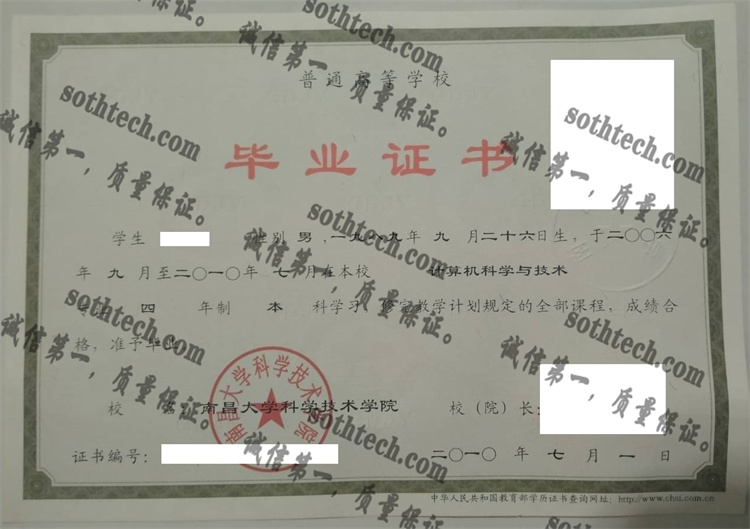 sothtech.com
诚信第一，质量保证。
普通高等学校
毕业证书
学生 性别 男 ,一九八九年 九 月二十六日生，于二〇〇六
年 九 月至二〇一〇年 七 月在本校 计算机科学与技术
四 年制 本 科学习 修完教学计划规定的全部课程，成绩合
格，准予毕业
校 名：南昌大学科学技术学院 校（院）长：
南昌大学科学技术学院
证书编号： 二〇一〇 年 七 月 一 日
中华人民共和国教育部学历证书查询网址：http://www.chsi.com.cn
sothtech.com
诚信第一，质量保证。
sothtech.com
诚信第一，质量保证。
sothtech.com
诚信第一，质量保证。
sothtech.com
诚信第一，质量保证。
sothtech.com
诚信第一，质量保证。
sothtech.com
诚信第一，质量保证。
sothtech.com
诚信第一，质量保证。